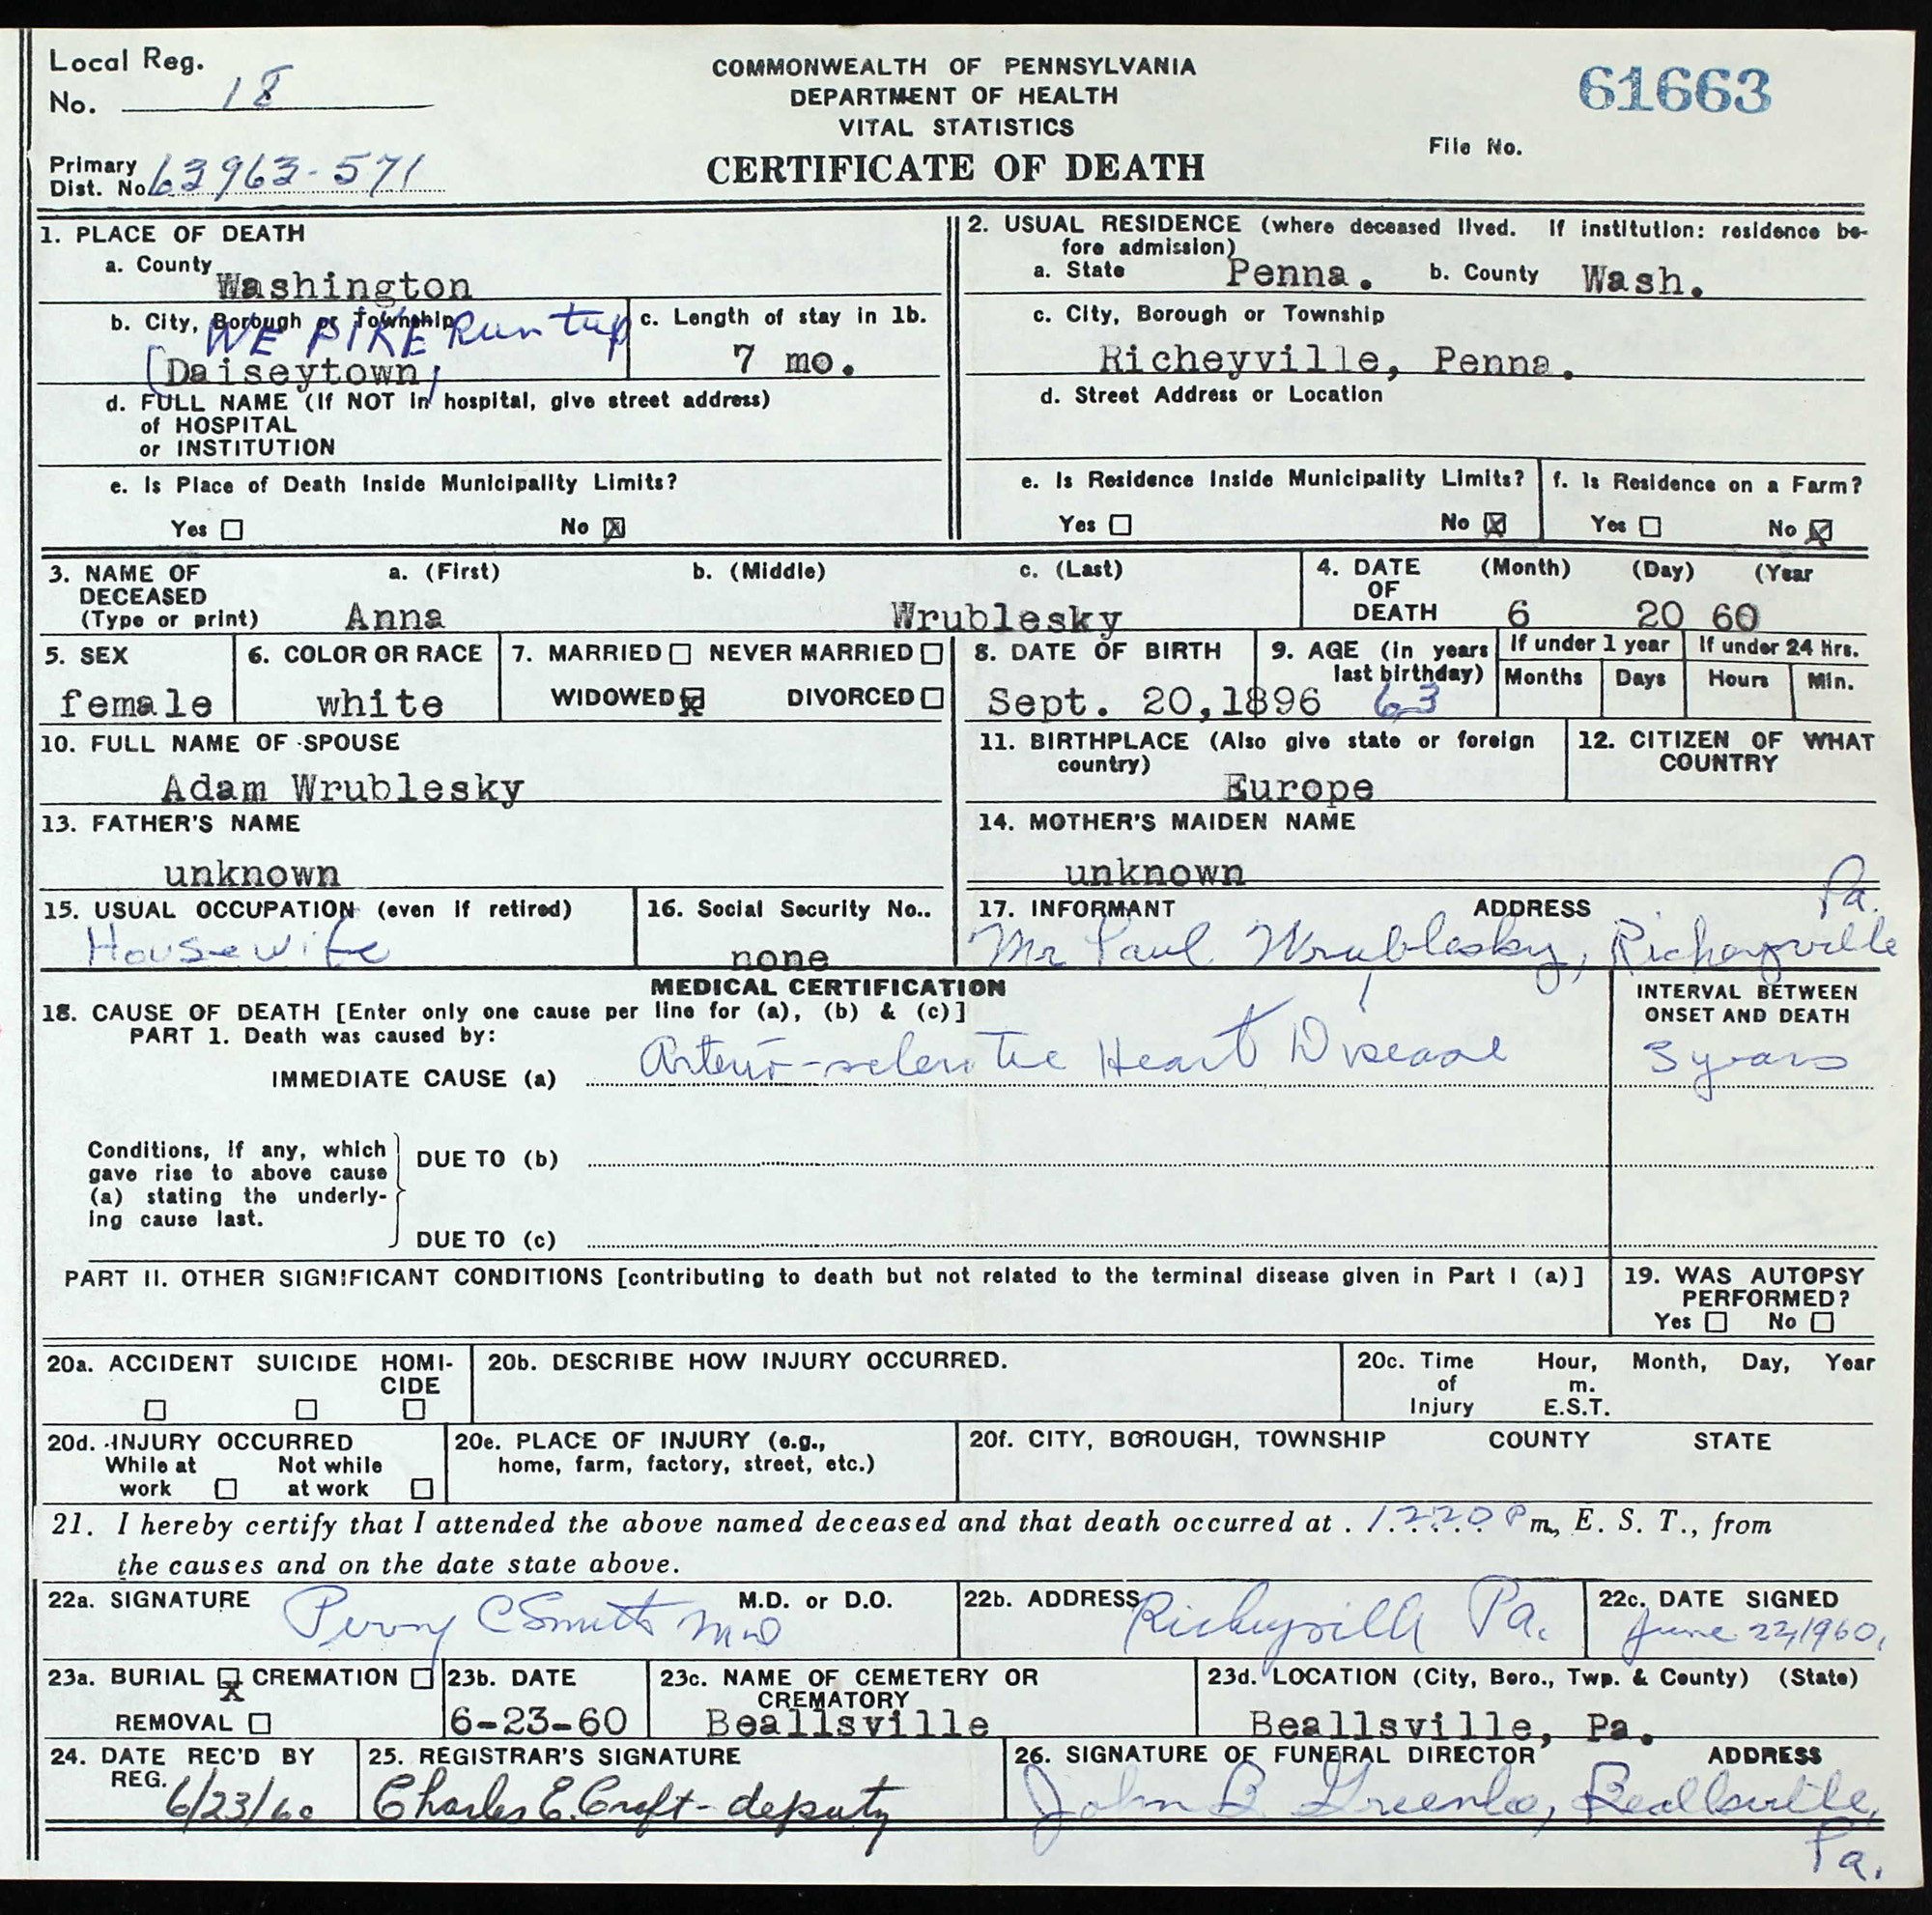 Local Reg.
No. 18
COMMONWEALTH OF PENNSYLVANIA
DEPARTMENT OF HEALTH
VITAL STATISTICS
CERTIFICATE OF DEATH
61663
File No.
Primary
Dist. No. 63963-571
1. PLACE OF DEATH
a. County
Washington
b. City, Borough or Township
WE PIKE Run twp
[Daiseytown,
c. Length of stay in 1b.
7 mo.
d. FULL NAME (If NOT in hospital, give street address)
of HOSPITAL
or INSTITUTION
e. Is Place of Death Inside Municipality Limits?
Yes ☐ No ☒
2. USUAL RESIDENCE (where deceased lived. If institution: residence be-
fore admission)
a. State Penna. b. County Wash.
c. City, Borough or Township
Richeyville, Penna.
d. Street Address or Location
e. Is Residence Inside Municipality Limits?
Yes ☐ No ☒
f. Is Residence on a Farm?
Yes ☐ No ☒
3. NAME OF
DECEASED
(Type or print)
a. (First) b. (Middle) c. (Last)
Anna Wrublesky
4. DATE
OF
DEATH
(Month) (Day) (Year
6 20 60
5. SEX
female
6. COLOR OR RACE
white
7. MARRIED ☐ NEVER MARRIED ☐
WIDOWED ☒ DIVORCED ☐
8. DATE OF BIRTH
Sept. 20,1896
9. AGE (in years
last birthday)
63
If under 1 year
Months Days
If under 24 hrs.
Hours Min.
10. FULL NAME OF SPOUSE
Adam Wrublesky
11. BIRTHPLACE (Also give state or foreign
country)
Europe
12. CITIZEN OF WHAT
COUNTRY
13. FATHER'S NAME
unknown
14. MOTHER'S MAIDEN NAME
unknown
15. USUAL OCCUPATION (even if retired)
Housewife
16. Social Security No..
none
17. INFORMANT ADDRESS
Mr Paul Wrublesky, Richeyville
Pa.
MEDICAL CERTIFICATION
18. CAUSE OF DEATH [Enter only one cause per line for (a), (b) & (c)]
PART 1. Death was caused by:
IMMEDIATE CAUSE (a) Arterio-sclerotic Heart Disease
INTERVAL BETWEEN
ONSET AND DEATH
3 years
Conditions, if any, which
gave rise to above cause
(a) stating the underly-
ing cause last.
DUE TO (b)
DUE TO (c)
PART II. OTHER SIGNIFICANT CONDITIONS [contributing to death but not related to the terminal disease given in Part I (a)]
19. WAS AUTOPSY
PERFORMED?
Yes ☐ No ☐
20a. ACCIDENT SUICIDE HOMI-
CIDE
☐ ☐ ☐
20b. DESCRIBE HOW INJURY OCCURRED.
20c. Time
of
Injury
Hour, Month, Day, Year
m.
E.S.T.
20d. INJURY OCCURRED
While at Not while
work ☐ at work ☐
20e. PLACE OF INJURY (e.g.,
home, farm, factory, street, etc.)
20f. CITY, BOROUGH, TOWNSHIP COUNTY STATE
21. I hereby certify that I attended the above named deceased and that death occurred at . 1220 P m., E. S. T., from
the causes and on the date state above.
22a. SIGNATURE M.D. or D.O.
Perry C Smith MD
22b. ADDRESS
Richeyville Pa.
22c. DATE SIGNED
June 22,1960.
23a. BURIAL ☒ CREMATION ☐
REMOVAL ☐
23b. DATE
6-23-60
23c. NAME OF CEMETERY OR
CREMATORY
Beallsville
23d. LOCATION (City, Boro., Twp. & County) (State)
Beallsville, Pa.
24. DATE REC'D BY
REG.
6/23/60
25. REGISTRAR'S SIGNATURE
Charles E. Craft - deputy
26. SIGNATURE OF FUNERAL DIRECTOR ADDRESS
John B Greenlee, Beallsville,
Pa.